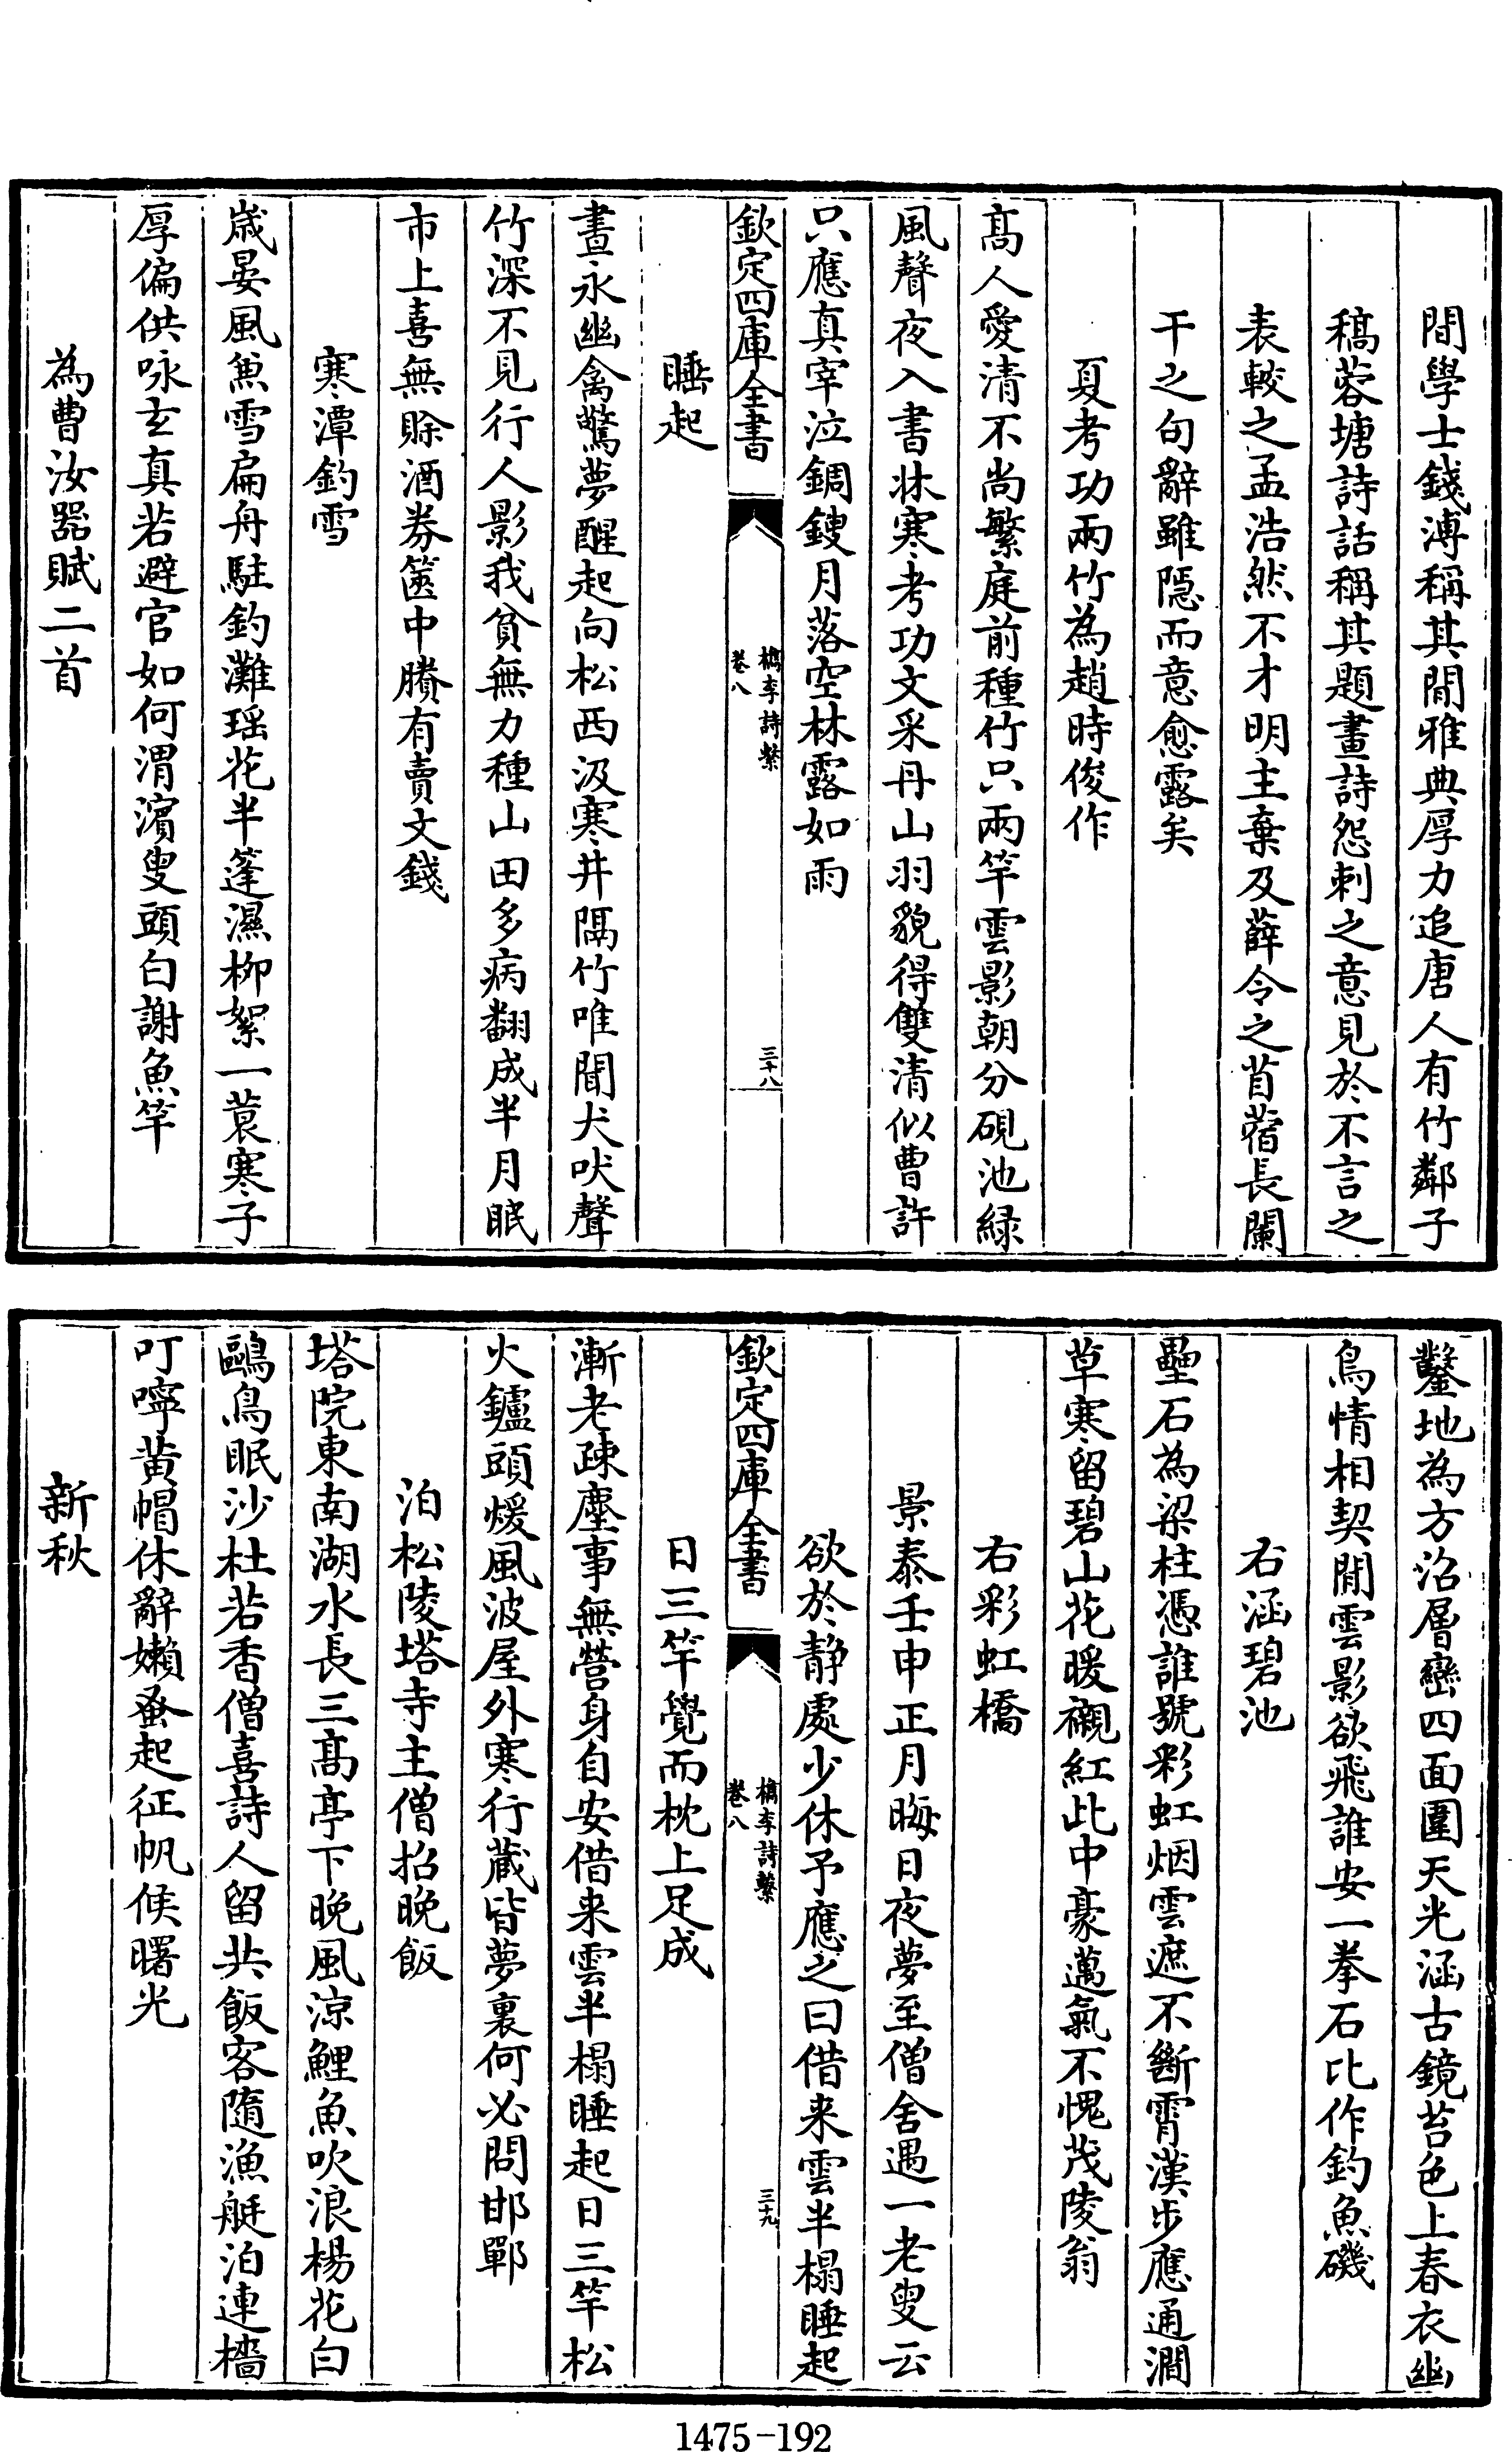 間學士錢溥稱其閒雅典厚力追唐人有竹鄰子
稿蓉塘詩話稱其題畫詩怨刺之意見於不言之
表較之孟浩然不才明主棄及薛令之苜蓿長闌
干之句辭雖隱而意愈露矣
夏考功兩竹為趙時俊作
髙人愛清不尚繁庭前種竹只兩竿雲影朝分硯池緑
風聲夜入書牀寒考功文采丹山羽貌得雙清似曹許
只應真宰泣鐗鎪月落空林露如雨
欽定四庫全書
檇李詩繫
卷八
三十八
睡起
晝永幽禽驚夢醒起向松西汲寒井隔竹唯聞犬吠聲
竹深不見行人影我貧無力種山田多病翻成半月眠
市上喜無賒酒券篋中賸有賣文錢
寒潭釣雪
歳晏風魚雪扁舟駐釣灘瑶花半篷濕柳絮一蓑寒子
厚偏供咏玄真若避官如何渭濱叟頭白謝魚竿
為曹汝器賦二首
鑿地為方沼層巒四面圍天光涵古鏡苔色上春衣幽
鳥情相契閒雲影欲飛誰安一拳石比作釣魚磯
右涵碧池
壘石為梁柱憑誰號彩虹烟雲遮不斷霄漢步應通澗
草寒留碧山花暖襯紅此中豪邁氣不愧茂陵翁
右彩虹橋
景泰壬申正月晦日夜夢至僧舍遇一老叟云
欲於静處少休予應之曰借来雲半榻睡起
欽定四庫全書
檇李詩繫
卷八
三十九
日三竿覺而枕上足成
漸老疎塵事無營身自安借来雲半榻睡起日三竿松
火鑪頭煖風波屋外寒行蔵皆夢裏何必問邯鄲
泊松陵塔寺主僧招晚飯
塔院東南湖水長三髙亭下晚風涼鯉魚吹浪楊花白
鷗鳥眠沙杜若香僧喜詩人留共飯客隨漁艇泊連檣
叮嚀黄帽休辭嬾蚤起征帆候曙光
新秋
1475-192